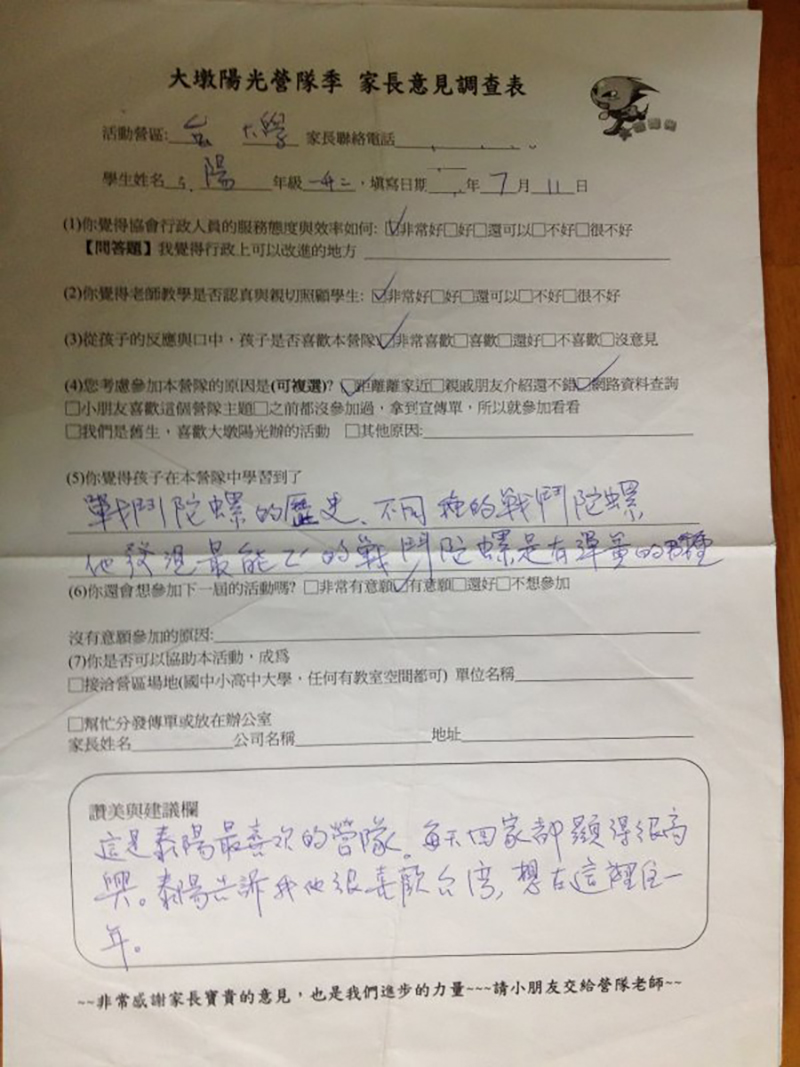 大墩陽光營隊季 家長意見調查表
活動營區: 台 大學 家長聯絡電話
學生姓名 陽 年級 升二,填寫日期 年 7 月 11 日
(1)你覺得協會行政人員的服務態度與效率如何: ☑非常好□好□還可以□不好□很不好
【問答題】我覺得行政上可以改進的地方
(2)你覺得老師教學是否認真與親切照顧學生: ☑非常好□好□還可以□不好□很不好
(3)從孩子的反應與口中,孩子是否喜歡本營隊☑非常喜歡□喜歡□還好□不喜歡□沒意見
(4)您考慮參加本營隊的原因是(可複選)? ☑距離離家近□親戚朋友介紹還不錯☑網路資料查詢
□小朋友喜歡這個營隊主題□之前都沒參加過,拿到宣傳單,所以就參加看看
□我們是舊生,喜歡大墩陽光辦的活動 □其他原因:
(5)你覺得孩子在本營隊中學習到了
戰鬥陀螺的歷史、不同種的戰鬥陀螺
他發現最能飞的戰鬥陀螺是有彈簧的那種
(6)你還會想參加下一屆的活動嗎? □非常有意願☑有意願□還好□不想參加
沒有意願參加的原因:
(7)你是否可以協助本活動,成為
□接洽營區場地(國中小高中大學,任何有教室空間都可) 單位名稱
□幫忙分發傳單或放在辦公室
家長姓名 公司名稱 地址
讚美與建議欄
這是泰陽最喜欢的營隊。每天回家都顯得很高
興。泰陽告訴我他很喜歡台湾,想在這裡住一
年。
~~非常感謝家長寶貴的意見,也是我們進步的力量~~~請小朋友交給營隊老師~~